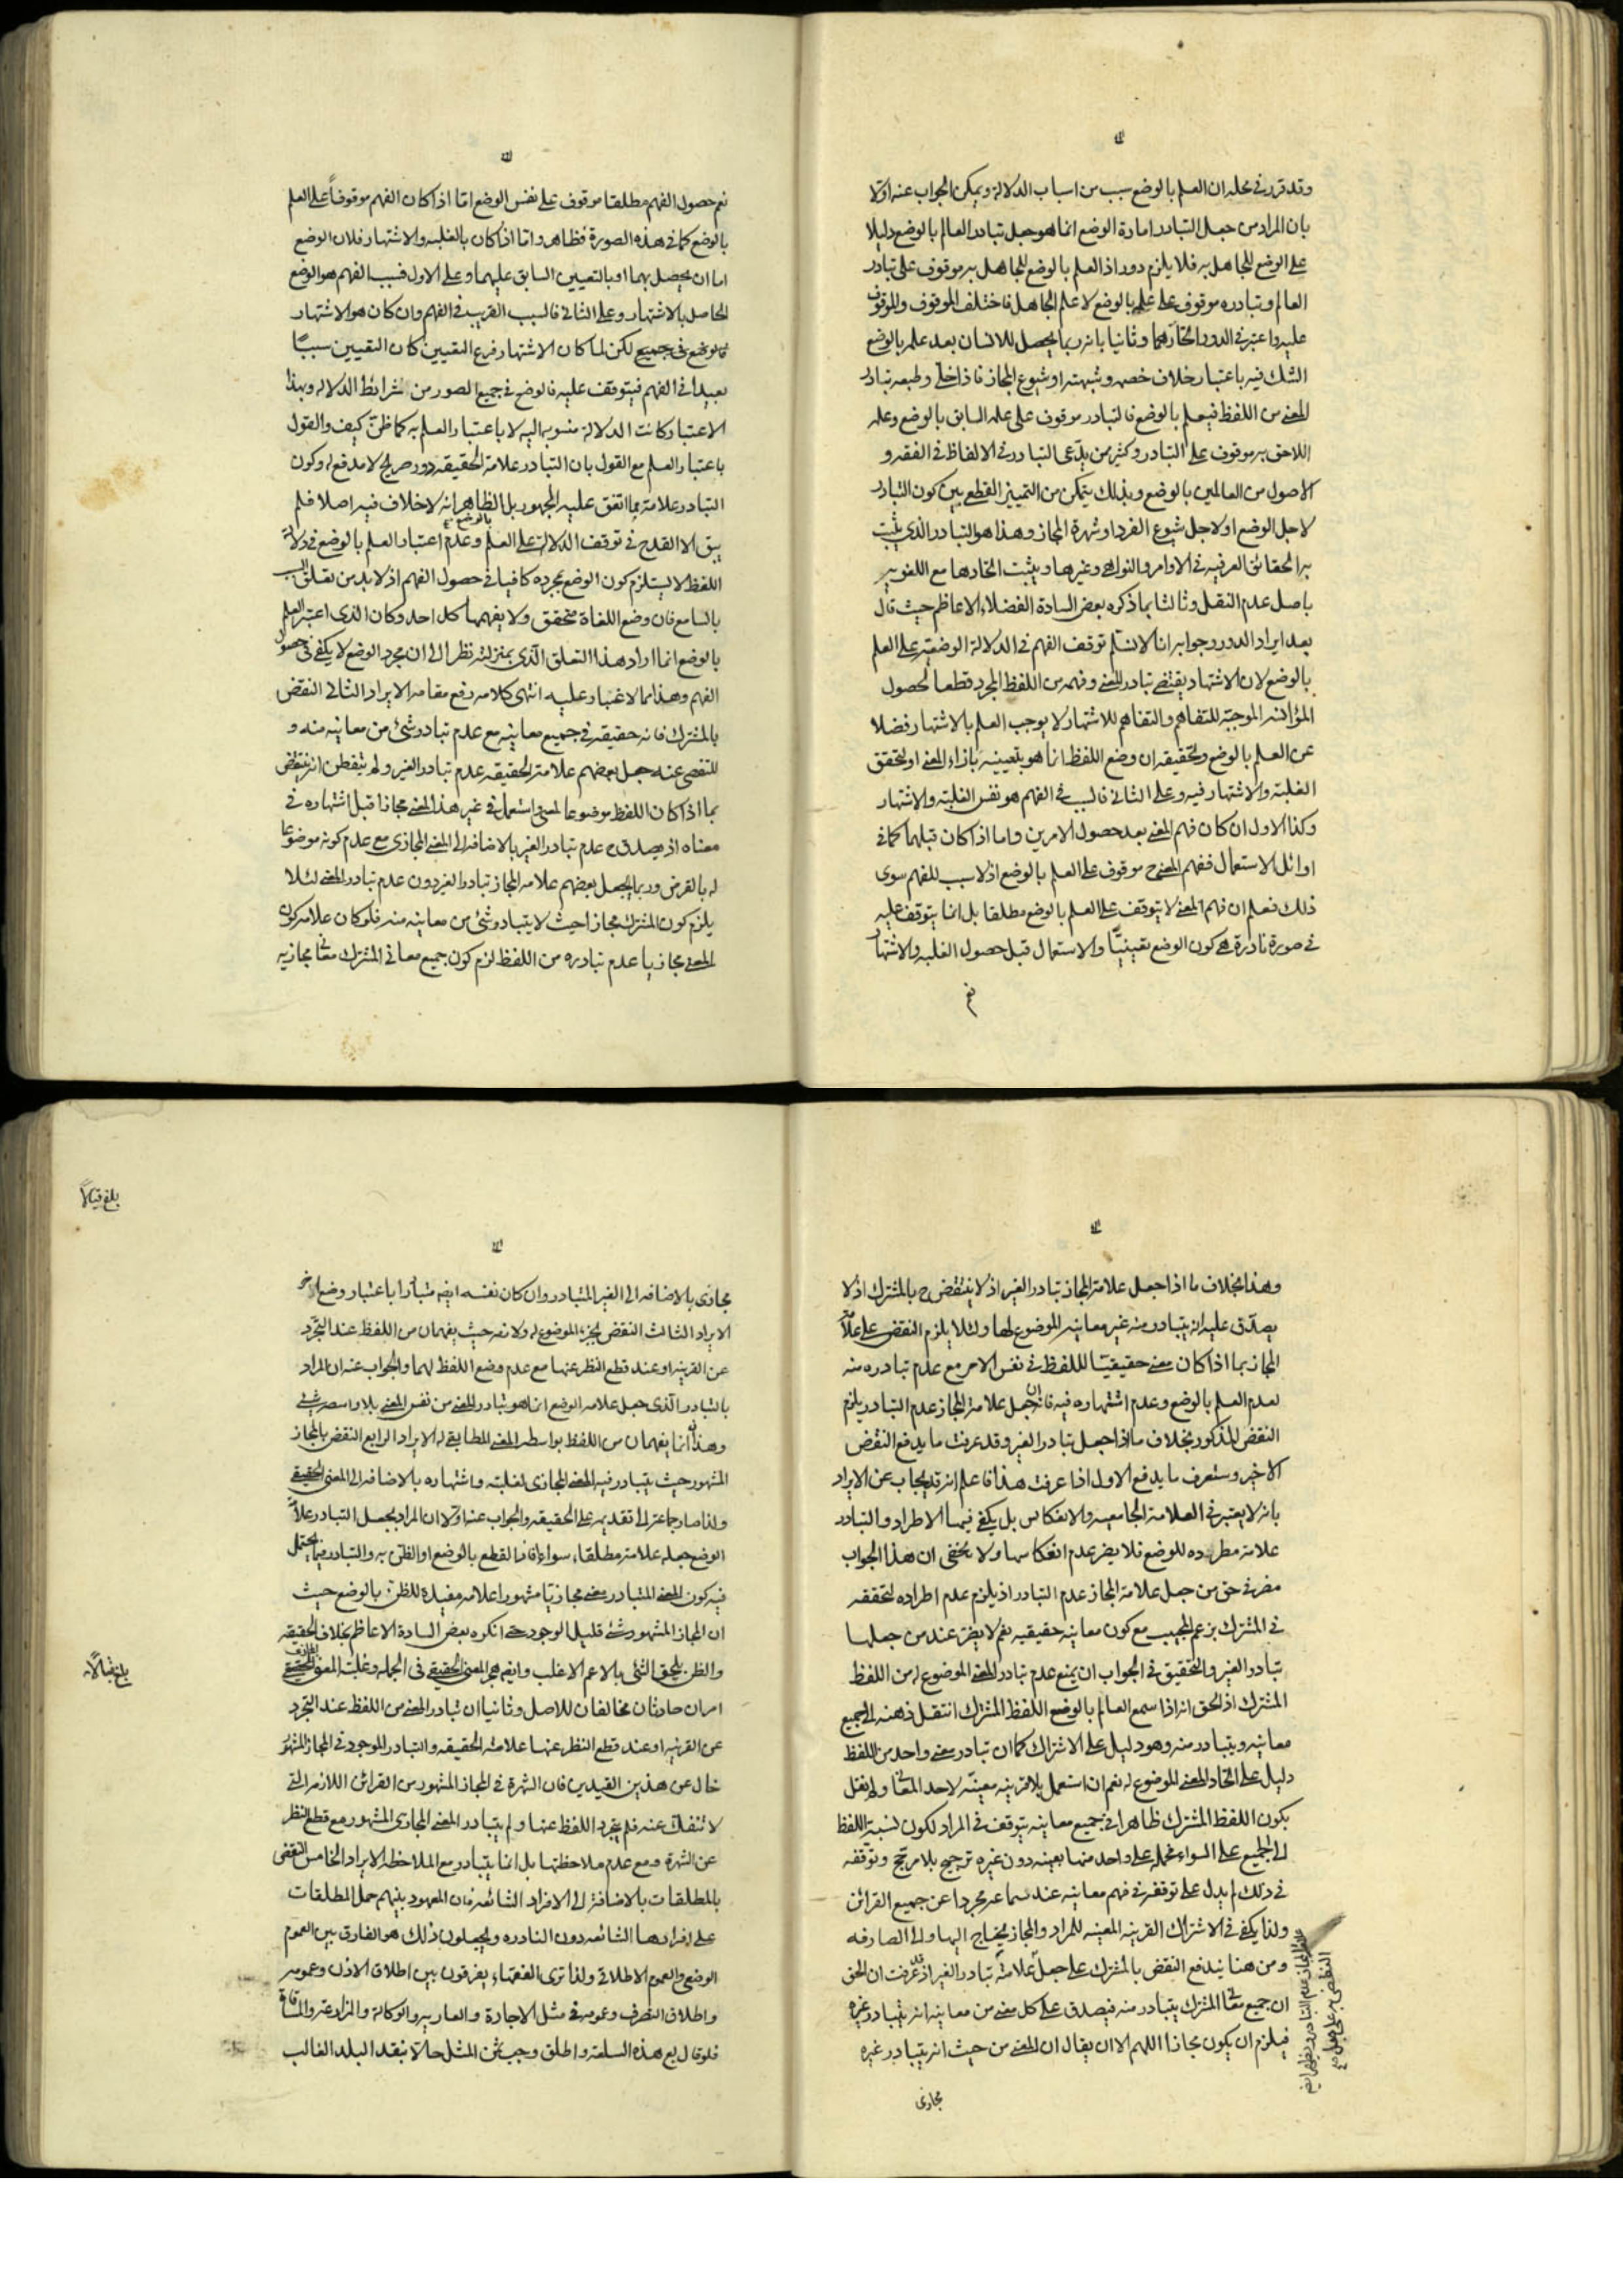 وقد قرر في محله ان العلم بالوضع سبب من اسباب الدلالة ويمكن الجواب عنه اولا
بان المراد من جعل التبادر امارة الوضع انما هو جعل تبادر العالم بالوضع دليلا
على الوضع للجاهل به فلا يلزم دور اذ العلم بالوضع للجاهل به موقوف على تبادر
العالم وتبادره موقوف على علمه بالوضع لا علم الجاهل فاختلف الموقوف والموقوف
عليه واعتبر في الدور اتحادهما وثانيا بانه ربما يحصل للانسان بعد علمه بالوضع
الشك فيه باعتبار خلاف خصمه وشبهته او شيوع المجاز فاذا خلى وطبعه تبادر
المعنى من اللفظ فيعلم بالوضع فالتبادر موقوف على علمه السابق بالوضع وعلمه
اللاحق به موقوف على التبادر وكثير من يدعى التبادر في الالفاظ في الفقه و
الاصول من العالمين بالوضع وبذلك يتمكن من التمييز القطع بين كون التبادر
لاجل الوضع او لاجل شيوع الفرد او شهرة المجاز وهذا هو التبادر الذي يثبت
به الحقائق العرفيه في الاوامر والنواهي وغيرها ويثبت اتحادها مع اللغويه
باصل عدم النقل وثالثا بما ذكره بعض السادة الفضلاء الاعاظم حيث قال
بعد ايراد الدور وجوابه انا لا نسلم توقف الفهم في الدلالة الوضعية على العلم
بالوضع لان الاشتهار يقتضي تبادر المعنى وفهمه من اللفظ المجرد قطعا لحصول
المؤانسة الموجبة للتفاهم والتفاهم للاشتهار لا يوجب العلم بالاشتهار فضلا
عن العلم بالوضع وتحقيقه ان وضع اللفظ انما هو بتعيينه بازاء المعنى او لتحقق
الغلبة والاشتهار فيه وعلى الثاني فالسبب في الفهم هو نفس الغلبة والاشتهار
وكذا الاول ان كان فهم المعنى بعد حصول الامرين واما اذا كان قبلهما كما في
اوائل الاستعمال ففهم المعنى ح موقوف على العلم بالوضع اذ لا سبب للفهم سوى
ذلك فعلم ان فهم المعنى لا يتوقف على العلم بالوضع مطلقا بل انما يتوقف عليه
في صورة نادرة هي كون الوضع تعيينيا والاستعمال قبل حصول الغلبه والاشتهار
نعم
نعم حصول الفهم مطلقا موقوف على نفس الوضع اما اذا كان الفهم موقوفا على العلم
بالوضع كما في هذه الصورة فظاهر واما اذا كان بالغلبه والاشتهار فلان الوضع
اما ان يحصل بهما او بالتعيين السابق عليهما وعلى الاول فسبب الفهم هو الوضع
الحاصل بالاشتهار وعلى الثاني فالسبب القريب في الفهم وان كان هو الاشتهار
لكن لما كان الاشتهار فرع التعيين كان التعيين سببا
بعيدا في الفهم فيتوقف عليه فالوضع في جميع الصور من شرائط الدلاله وبهذا
الاعتبار كانت الدلالة منسوبة اليه لا باعتبار العلم به كما ظن كيف والقول
باعتبار العلم مع القول بان التبادر علامة الحقيقه دور صريح لا مدفع له وكون
التبادر علامة مما اتفق عليه الجمهور بل الظاهر انه لا خلاف فيه اصلا فلم
يبق الا القدح في توقف الدلالة على العلم بالوضع وعدم اعتبار العلم بالوضع في دلالة
اللفظ لا يستلزم كون الوضع بمجرده كافيا في حصول الفهم اذ لابد من تعلق
بالسامع فان وضع اللغاة متحقق ولا يفهمها كل احد وكان الذى اعتبر العلم
بالوضع انما اراد هذا التعلق الذى بمنزلته نظرا الى ان مجرد الوضع لا يكفي في حصول
الفهم وهذا مما لا غبار عليه انتهى كلامه رفع مقامه الايراد الثاني النقض
بالمشترك فانه حقيقه في جميع معانيه مع عدم تبادر شئ من معانيه منه و
للتفصي عنه جعل بعضهم علامة الحقيقه عدم تبادر الغير ولم يتفطن انه ينتقض
بما اذا كان اللفظ موضوعا لمعنى واستعمل في غير هذا المعنى مجازا قبل اشتهاره في
معناه اذ يصدق ح عدم تبادر الغير بالاضافه الى المعنى المجازى مع عدم كونه موضوعا
له بالفرض وربما يجعل بعضهم علامه المجاز تبادر الغير دون عدم تبادر المعنى لئلا
يلزم كون المشترك مجازا حيث لا يتبادر شئ من معانيه منه فلو كان علامه كون
المعنى مجازيا عدم تبادره من اللفظ لزم كون جميع معاني المشترك معانى مجازيه
وهذا بخلاف ما اذا جعل علامة المجاز تبادر الغير اذ لا ينتقض ح بالمشترك اذ لا
يصدق عليه انه يتبادر منه غير معانيه الموضوع لها ولئلا يلزم النقض على علامة
المجاز بما اذا كان معنى حقيقيا للفظ في نفس الامر مع عدم تبادره منه
لعدم العلم بالوضع وعدم اشتهاره فيه فانه ان جعل علامة المجاز عدم التبادر يلزم
النقض المذكور بخلاف ما اذا جعل تبادر الغير وقد عرفت ما يدفع النقض
الاخير وستعرف ما يدفع الاول اذا عرفت هذا فاعلم انه قد يجاب عن الايراد
بانه لا يعتبر في العلامة الجامعيه والانعكاس بل يكفي فيها الاطراد والتبادر
علامة مطرده للوضع فلا يضر عدم انعكاسها ولا يخفى ان هذا الجواب
مضر في حق من جعل علامة المجاز عدم التبادر اذ يلزم عدم اطراده لتحققه
في المشترك بزعم المجيب مع كون معانيه حقيقيه نعم لا يضر عند من جعلها
تبادر الغير والتحقيق في الجواب ان يمنع عدم تبادر المعنى الموضوع له من اللفظ
المشترك اذ الحق انه اذا سمع العالم بالوضع اللفظ المشترك انتقل ذهنه الى جميع
معانيه ويتبادر منه وهو دليل على الاشتراك كما ان تبادر معنى واحد من اللفظ
دليل على اتحاد المعنى الموضوع له نعم ان استعمل بلا قرينه معينه لاحد المعانى ولم نقل
بكون اللفظ المشترك ظاهرا في جميع معانيه يتوقف في المراد لكون نسبة اللفظ
الى الجميع على السواء فحمله على واحد منها بعينه دون غيره ترجيح بلا مرجح وتوقفه
في ذلك لم يدل على توقفه في فهم معانيه عند سماعه مجردا عن جميع القرائن
ولذا يكفي في الاشتراك القرينه المعينه للمراد والمجاز يحتاج اليها والى الصارفه
ومن هنا يندفع النقض بالمشترك على جعل علامته تبادر الغير اذ قد عرفت ان الحق
ان جميع معانى المشترك يتبادر منه فيصدق على كل معنى من معانيه انه يتبادر غيره
فيلزم ان يكون مجازا اللهم الا ان يقال ان المعنى من حيث انه يتبادر غيره
مجازى
بلغ قبالا
مجازى بالاضافه الى الغير المتبادر وان كان نفسه ايضا متبادرا باعتبار وضع اخر
الايراد الثالث النقض بجزء الموضوع له ولازمه حيث يفهمان من اللفظ عند التجرد
عن القرينه او عند قطع النظر عنها مع عدم وضع اللفظ لهما والجواب عنه ان المراد
بالتبادر الذى جعل علامه الوضع انما هو تبادر المعنى من نفس المعنى بلا واسطه شئ
وهذان انما يفهمان من اللفظ بواسطه المعنى المطابقى له الايراد الرابع النقض بالمجاز
المشهور حيث يتبادر فيه المعنى المجازى لغلبته واشتهاره بالاضافه الى المعنى الحقيقي
ولذا صار جماعة الى تقديمه على الحقيقه والجواب عنه اولا ان المراد بجعل التبادر علامة
الوضع جعله علامة مطلقا، سواء افاد القطع بالوضع او الظن به والتبادر فيما يحتمل
فيه كون المعنى المتبادر معنى مجازيا مشهورا علامه مفيدة للظن بالوضع حيث
ان المجاز المشهور شئ قليل الوجود حتى انكره بعض السادة الاعاظم بخلاف الحقيقه
والظن يلحق الشئ بالاعم الاغلب وايضا هجر المعنى الحقيقي في الجمله وغلبة المعنى المجازى
امران حادثان مخالفان للاصل وثانيا ان تبادر المعنى من اللفظ عند التجرد
عن القرينه او عند قطع النظر عنها علامة الحقيقه والتبادر الموجود في المجاز المشهور
خال عن هذين القيدين فان الشهرة في المجاز المشهور من القرائن اللازمه التى
لا تنفك عنه فلم يتجرد اللفظ عنها ولم يتبادر المعنى المجازى المشهور مع قطع النظر
عن الشهرة ومع عدم ملاحظتها بل انما يتبادر مع الملاحظه الايراد الخامس النقض
بالمطلقات بالاضافة الى الافراد الشائعه فان المعهود بينهم حمل المطلقات
على افرادها الشائعه دون النادره ويجعلون ذلك هو الفارق بين العموم
الوضعي والعموم الاطلاقي ولذا ترى الفقهاء يفرقون بين اطلاق الاذن وعمومه
واطلاق التصرف وعمومه في مثل الاجارة والعاريه والوكالة والمزارعة والمساقاة
فلو قال بع هذه السلعة واطلق وجب ثمن المثل حالا بنقد البلد الغالب
بلغ قبالا